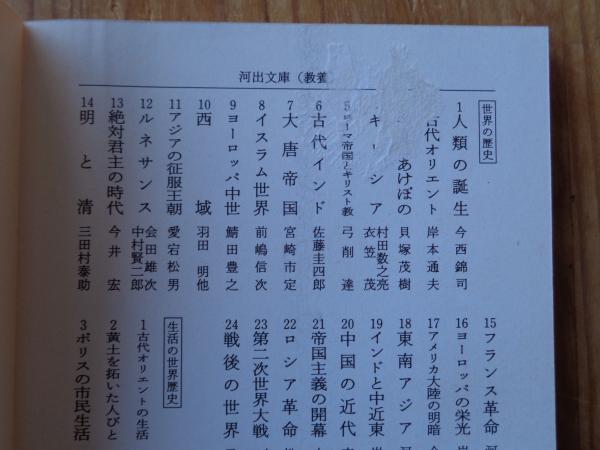 河出文庫（教養
世界の歴史
1 人類の誕生 今西錦司
古代オリエント 岸本通夫
あけぼの 貝塚茂樹
ギリシア 村田数之亮 衣笠茂
5 ローマ帝国とキリスト教 弓削達
6 古代インド 佐藤圭四郎
7 大唐帝国 宮崎市定
8 イスラム世界 前嶋信次
9 ヨーロッパ中世 鯖田豊之
10 西域 羽田明他
11 アジアの征服王朝 愛宕松男
12 ルネサンス 会田雄次 中村賢二郎
13 絶対君主の時代 今井宏
14 明と清 三田村泰助
15 フランス革命 河
16 ヨーロッパの栄光 岩
17 アメリカ大陸の明暗 今
18 東南アジア 河
19 インドと中近東 岩
20 中国の近代
21 帝国主義の開幕
22 ロシア革命 松
23 第二次世界大戦
24 戦後の世界
生活の世界歴史
1 古代オリエントの生活
2 黄土を拓いた人びと
3 ポリスの市民生活